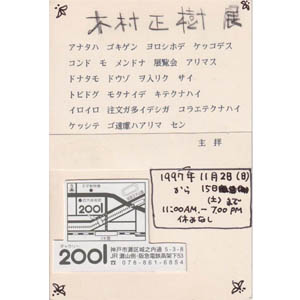 木村正樹 展
アナタハ ゴキゲン ヨロシホデ ケッコデス
コンド モ メンドナ 展覧会 アリマス
ドナタモ ドウゾ ヲ入リク サイ
トビドグ モタナイデ キテクナハイ
イロイロ 注文ガ多イデシガ コラエテクナハイ
ケッシテ ゴ遠慮ハアリマ セン
主 拝
1997年 11月2日(日)
から 15日
(土)まで
11:00AM.― 7:00 PM
休みなし
2001
ギャラリー
2001
神戸市灘区城之内通 5-3-8
JR 灘山側・阪急電鉄高架下53
078-861-6854